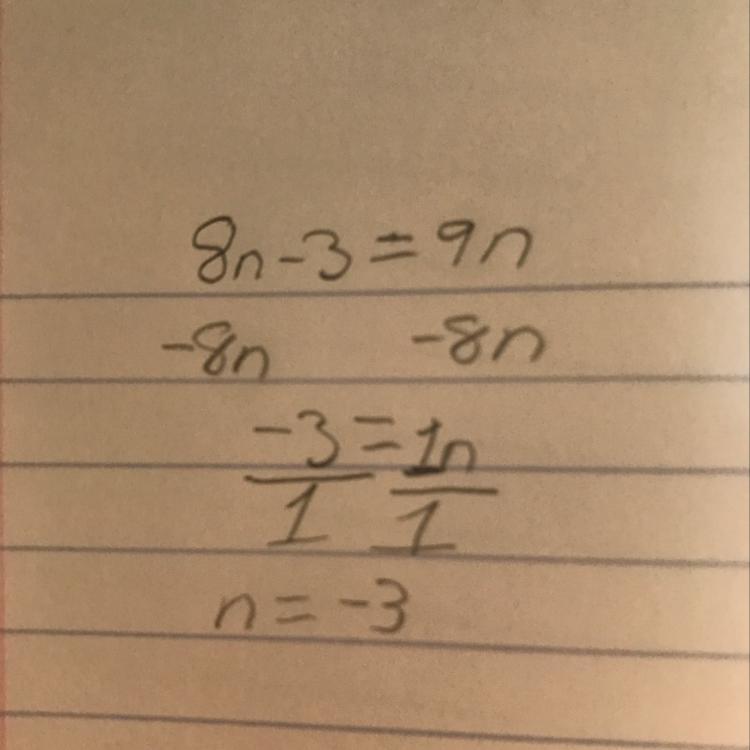 8n-3=9n
-8n -8n
-3=1n
1 1
n=-3